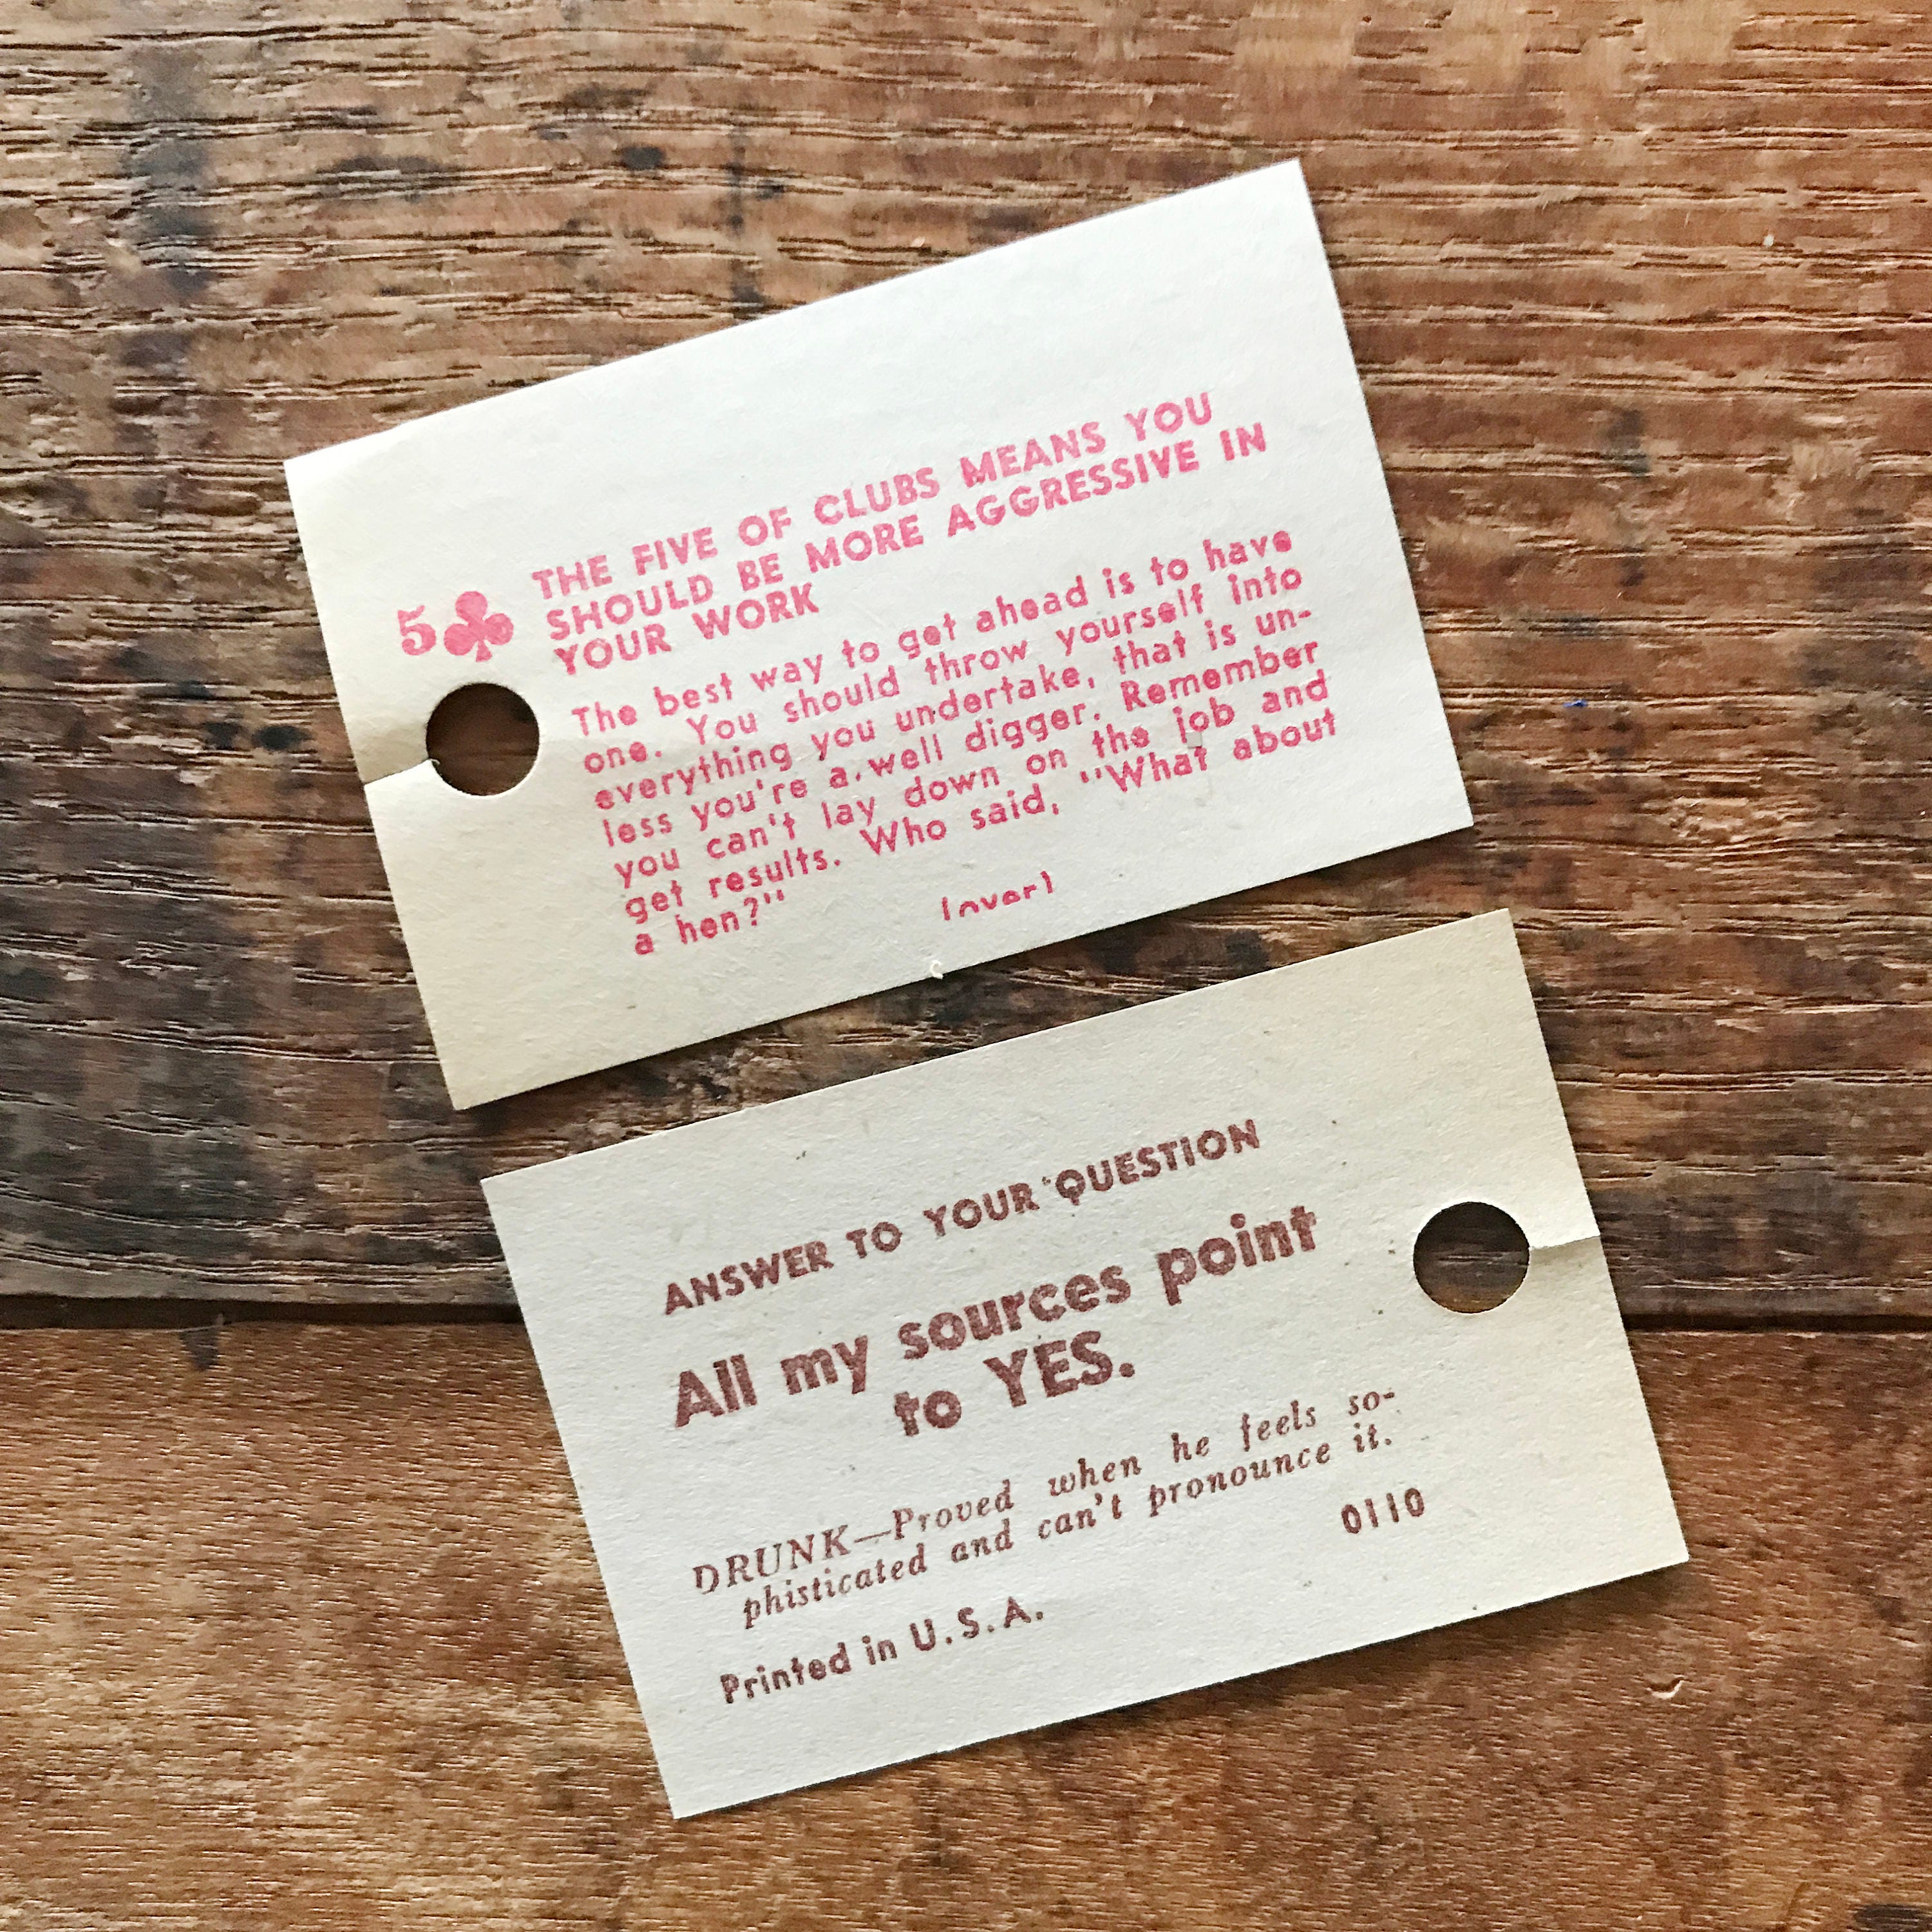 THE FIVE OF CLUBS MEANS YOU
SHOULD BE MORE AGGRESSIVE IN
5♣ YOUR WORK
The best way to get ahead is to have
one. You should throw yourself into
everything you undertake, that is un-
less you're a well digger. Remember
you can't lay down on the job and
get results. Who said, "What about
a hen?"
ANSWER TO YOUR QUESTION
All my sources point
to YES.
DRUNK—Proved when he feels so-
phisticated and can't pronounce it.
0110
Printed in U.S.A.